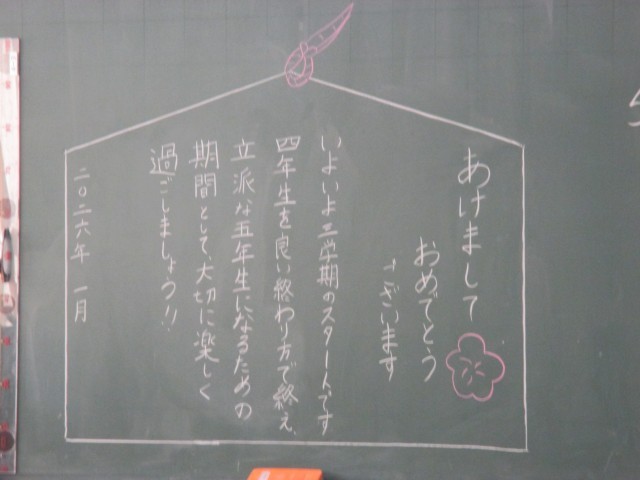 あけまして
おめでとう
ございます
いよいよ三学期のスタートです
四年生を良い終わり方で終え、
立派な五年生になるための
期間として、大切に楽しく
過ごしましょう!!
二〇二六年 一月